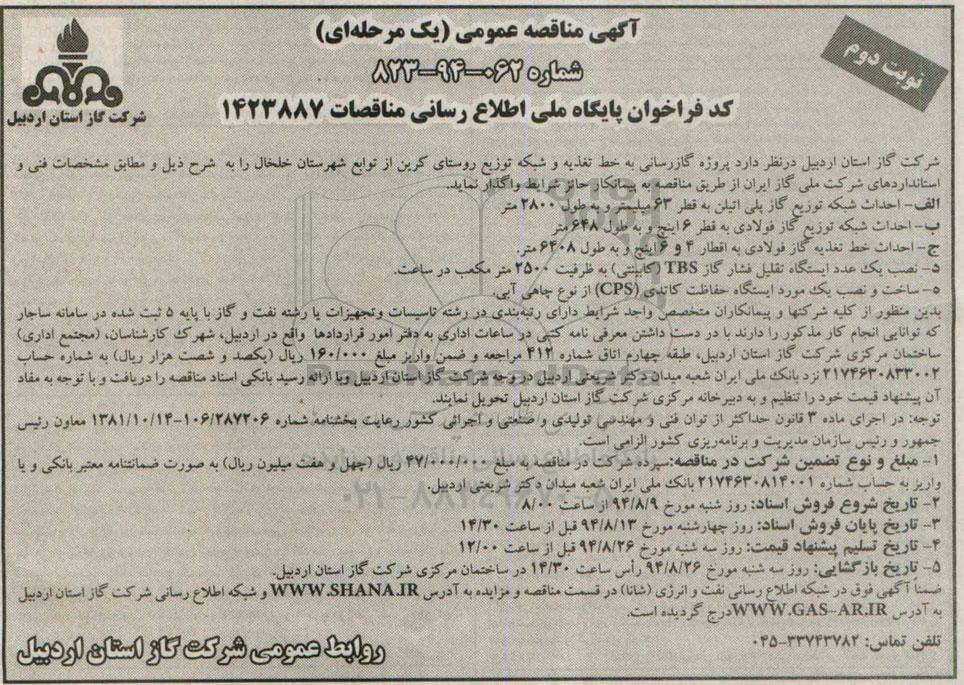 آگهی مناقصه عمومی (یک مرحله‌ای)
نوبت دوم
شماره ۰۶۲-۹۴-۸۲۳
کد فراخوان پایگاه ملی اطلاع رسانی مناقصات ۱۴۲۳۸۸۷
شرکت گاز استان اردبیل
شرکت گاز استان اردبیل درنظر دارد پروژه گازرسانی به خط تغذیه و شبکه توزیع روستای کرین از توابع شهرستان خلخال را به شرح ذیل و مطابق مشخصات فنی و
استانداردهای شرکت ملی گاز ایران از طریق مناقصه به پیمانکار حائز شرایط واگذار نماید.
الف- احداث شبکه توزیع گاز پلی اتیلن به قطر ۶۳ میلیمتر و به طول ۲۸۰۰ متر
ب- احداث شبکه توزیع گاز فولادی به قطر ۶ اینچ و به طول ۶۴۸ متر
ج- احداث خط تغذیه گاز فولادی به اقطار ۴ و ۶ اینچ و به طول ۶۴۰۸ متر.
د- نصب یک عدد ایستگاه تقلیل فشار گاز TBS (کابینتی) به ظرفیت ۲۵۰۰ متر مکعب در ساعت.
ه- ساخت و نصب یک مورد ایستگاه حفاظت کاتدی (CPS) از نوع چاهی آبی.
بدین منظور از کلیه شرکتها و پیمانکاران متخصص واجد شرایط دارای رتبه‌بندی در رشته تاسیسات وتجهیزات یا رشته نفت و گاز با پایه ۵ ثبت شده در سامانه ساجار
که توانایی انجام کار مذکور را دارند با در دست داشتن معرفی نامه کتبی در ساعات اداری به دفتر امور قراردادها واقع در اردبیل، شهرک کارشناسان، (مجتمع اداری)
ساختمان مرکزی شرکت گاز استان اردبیل، طبقه چهارم اتاق شماره ۴۱۲ مراجعه و ضمن واریز مبلغ ۱۶۰/۰۰۰ ریال (یکصد و شصت هزار ریال) به شماره حساب
۲۱۷۴۶۳۰۸۳۳۰۰۲ نزد بانک ملی ایران شعبه میدان دکتر شریعتی اردبیل در وجه شرکت گاز استان اردبیل وبا ارائه رسید بانکی اسناد مناقصه را دریافت و با توجه به مفاد
آن پیشنهاد قیمت خود را تنظیم و به دبیرخانه مرکزی شرکت گاز استان اردبیل تحویل نمایند.
توجه: در اجرای ماده ۳ قانون حداکثر از توان فنی و مهندسی تولیدی و صنعتی و اجرائی کشور رعایت بخشنامه شماره ۱۰۶/۲۸۷۲۰۶-۱۳۸۱/۱۰/۱۴ معاون رئیس
جمهور و رئیس سازمان مدیریت و برنامه‌ریزی کشور الزامی است.
۱- مبلغ و نوع تضمین شرکت در مناقصه:سپرده شرکت در مناقصه به مبلغ ۴۷/۰۰۰/۰۰۰ ریال (چهل و هفت میلیون ریال) به صورت ضمانتنامه معتبر بانکی و یا
واریز به حساب شماره ۲۱۷۴۶۳۰۸۱۴۰۰۱ بانک ملی ایران شعبه میدان دکتر شریعتی اردبیل.
۲- تاریخ شروع فروش اسناد: روز شنبه مورخ ۹۴/۸/۹ از ساعت ۸/۰۰
۳- تاریخ پایان فروش اسناد: روز چهارشنبه مورخ ۹۴/۸/۱۳ قبل از ساعت ۱۴/۳۰
۴- تاریخ تسلیم پیشنهاد قیمت: روز سه شنبه مورخ ۹۴/۸/۲۶ قبل از ساعت ۱۲/۰۰
۵- تاریخ بازگشایی: روز سه شنبه مورخ ۹۴/۸/۲۶ رأس ساعت ۱۴/۳۰ در ساختمان مرکزی شرکت گاز استان اردبیل.
ضمناً آگهی فوق در شبکه اطلاع رسانی نفت و انرژی (شانا) در قسمت مناقصه و مزایده به آدرس WWW.SHANA.IR و شبکه اطلاع رسانی شرکت گاز استان اردبیل
به آدرس WWW.GAS-AR.IR درج گردیده است.
تلفن تماس: ۳۳۷۴۳۷۸۲-۰۴۵
روابط عمومی شرکت گاز استان اردبیل